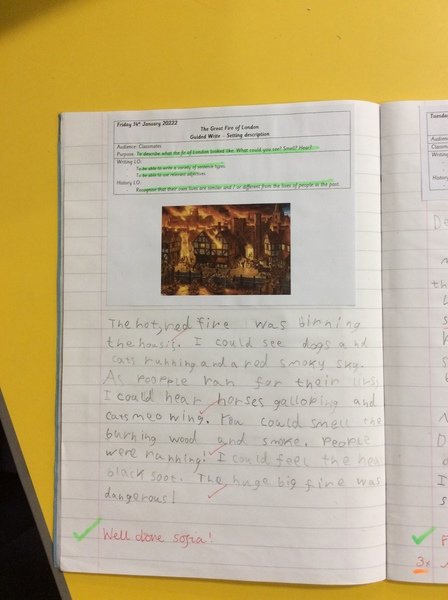 Friday 14th January 20222
The Great Fire of London
Guided Write Setting description
Audience: Classmates
Purpose: To describe what the fir of London looked like. What could you see? Smell? Hear?
Writing LO:
- To be able to write a variety of sentence types.
- To be able to use relevant adjectives.
History LO:
- Recognise that their own lives are similar and / or different from the lives of people in the past.
The hot, red fire was birning
the . I could see dogs and
cats running and a red smoky sky.
As ran for their
I could hear horses galloping and
cats meowing. You could smell the
burning wood and smoke. People
were running! I could feel the
black soot. The huge big fire was
dangerous!
Well done sofia!
Tuesda
Audien
Classm
Writing
History
3x